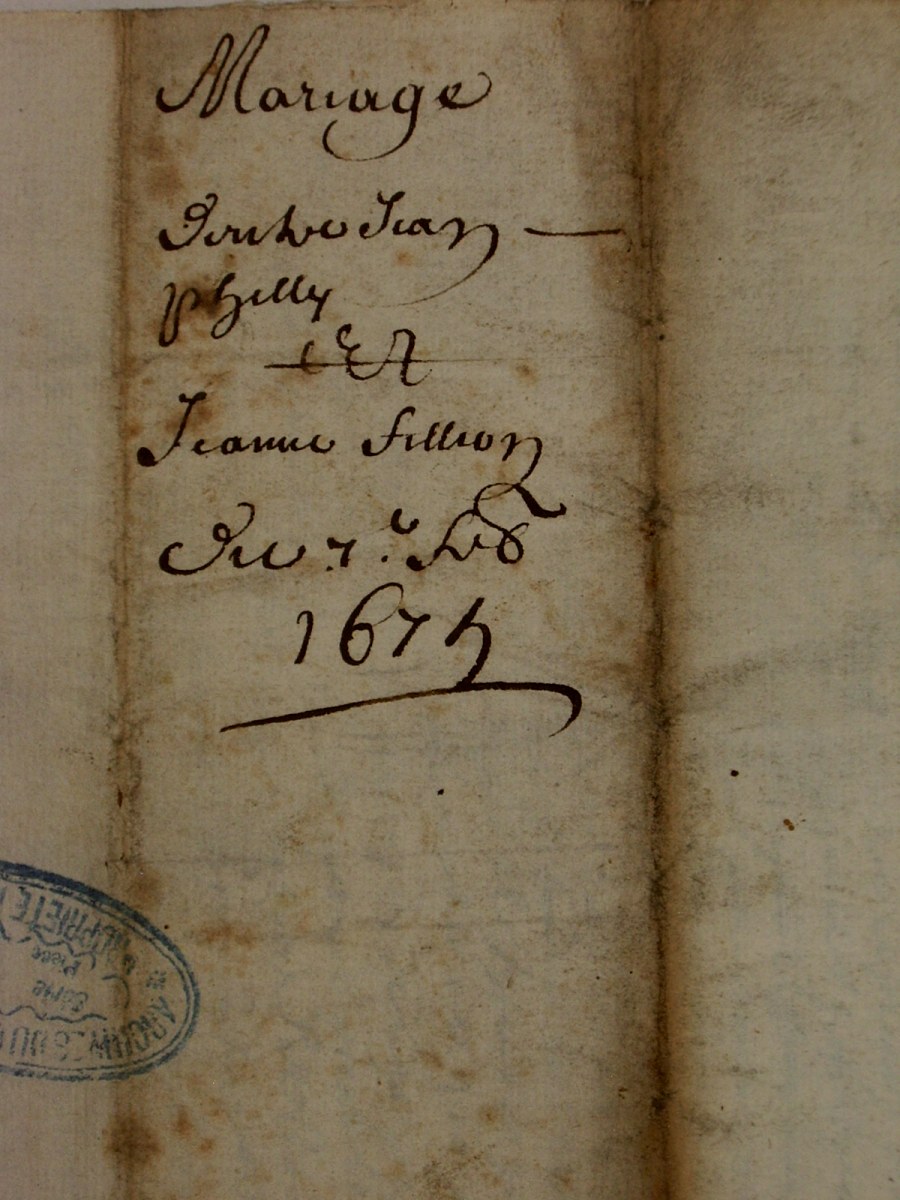 Mariage
Entre Jean
philly
Et
Jeanne fillion
Du 7.e feb
1675
ARCHIVES DU
PROPRIETE
Série
Pièce